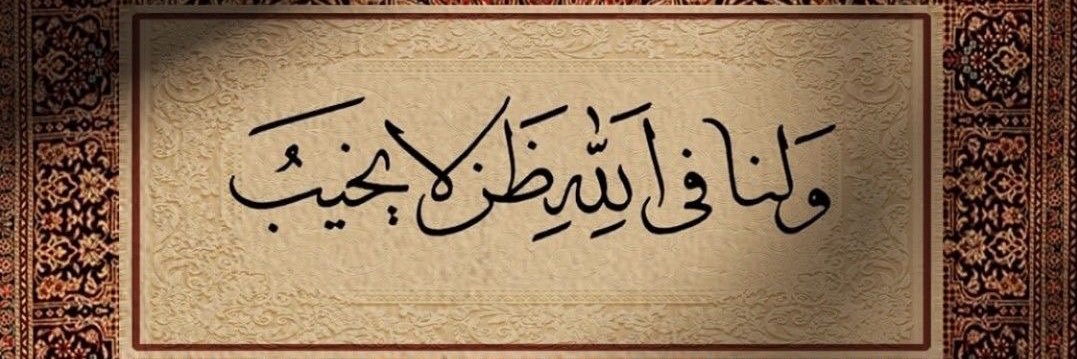 وَلنا فى اللَّهِ ظَن لا يخيبُ